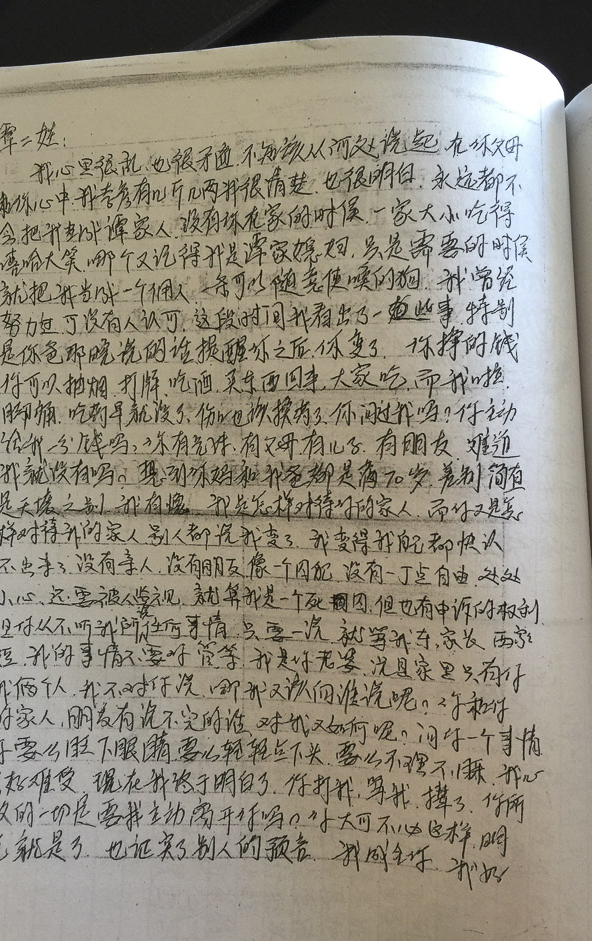 二姓：
我心里很乱，也很矛盾，不知该从何处说起，在你父母
你心中，我李秀有几斤几两我很清楚，也很明白，永远都不
会把我当成谭家人，没有你在家的时候，一家大小吃得
嘻哈大笑，哪个又记得我是谭家媳妇，只是需要的时候
就把我当成一个佣人，一条可以随意使唤的狗，我曾经
努力过，可没有人认可，这段时间我看出了一些事，特别
是你爸那晚说的话提醒你之后，你变了，你挣的钱
你可以抽烟，打牌，吃酒，买东西回来，大家吃，而我
脚痛，吃药早就没了，伤口也该换药了，你问过我吗？你主动
给我一分钱吗？你有兄妹，有父母，有儿子，有朋友，难道
我就没有吗？想到你妈和我爸都是满70岁，差别简直
是天壤之别，我自愧，我是怎样对待你的家人，而你又是怎
样对待我的家人，别人都说我变了，我变得我自己都快认
不出来了，没有亲人，没有朋友，像一个囚犯，没有一丁点自由，处处
小心，还要被人监视，就算我是一个死囚，但也有申诉的权利，
但你从不听我所任何事情，只要一说，就算我东家长，西家
短，我的事情不要对你答等，我是你老婆，况且家里只有你
我俩个人，我不对你说，那我又该向谁说呢？你和你
的家人，朋友有说不完的话，对我又如何呢？问你一个事情
要么眨下眼睛，要么轻轻点下头，要么不理不睬，我心
好难受，现在我终于明白了，你打我，骂我，撵了，你所
的一切是要我主动离开你吗？你大可不必这样，明
就是了，也证实了别人的预言，我成全你，我好